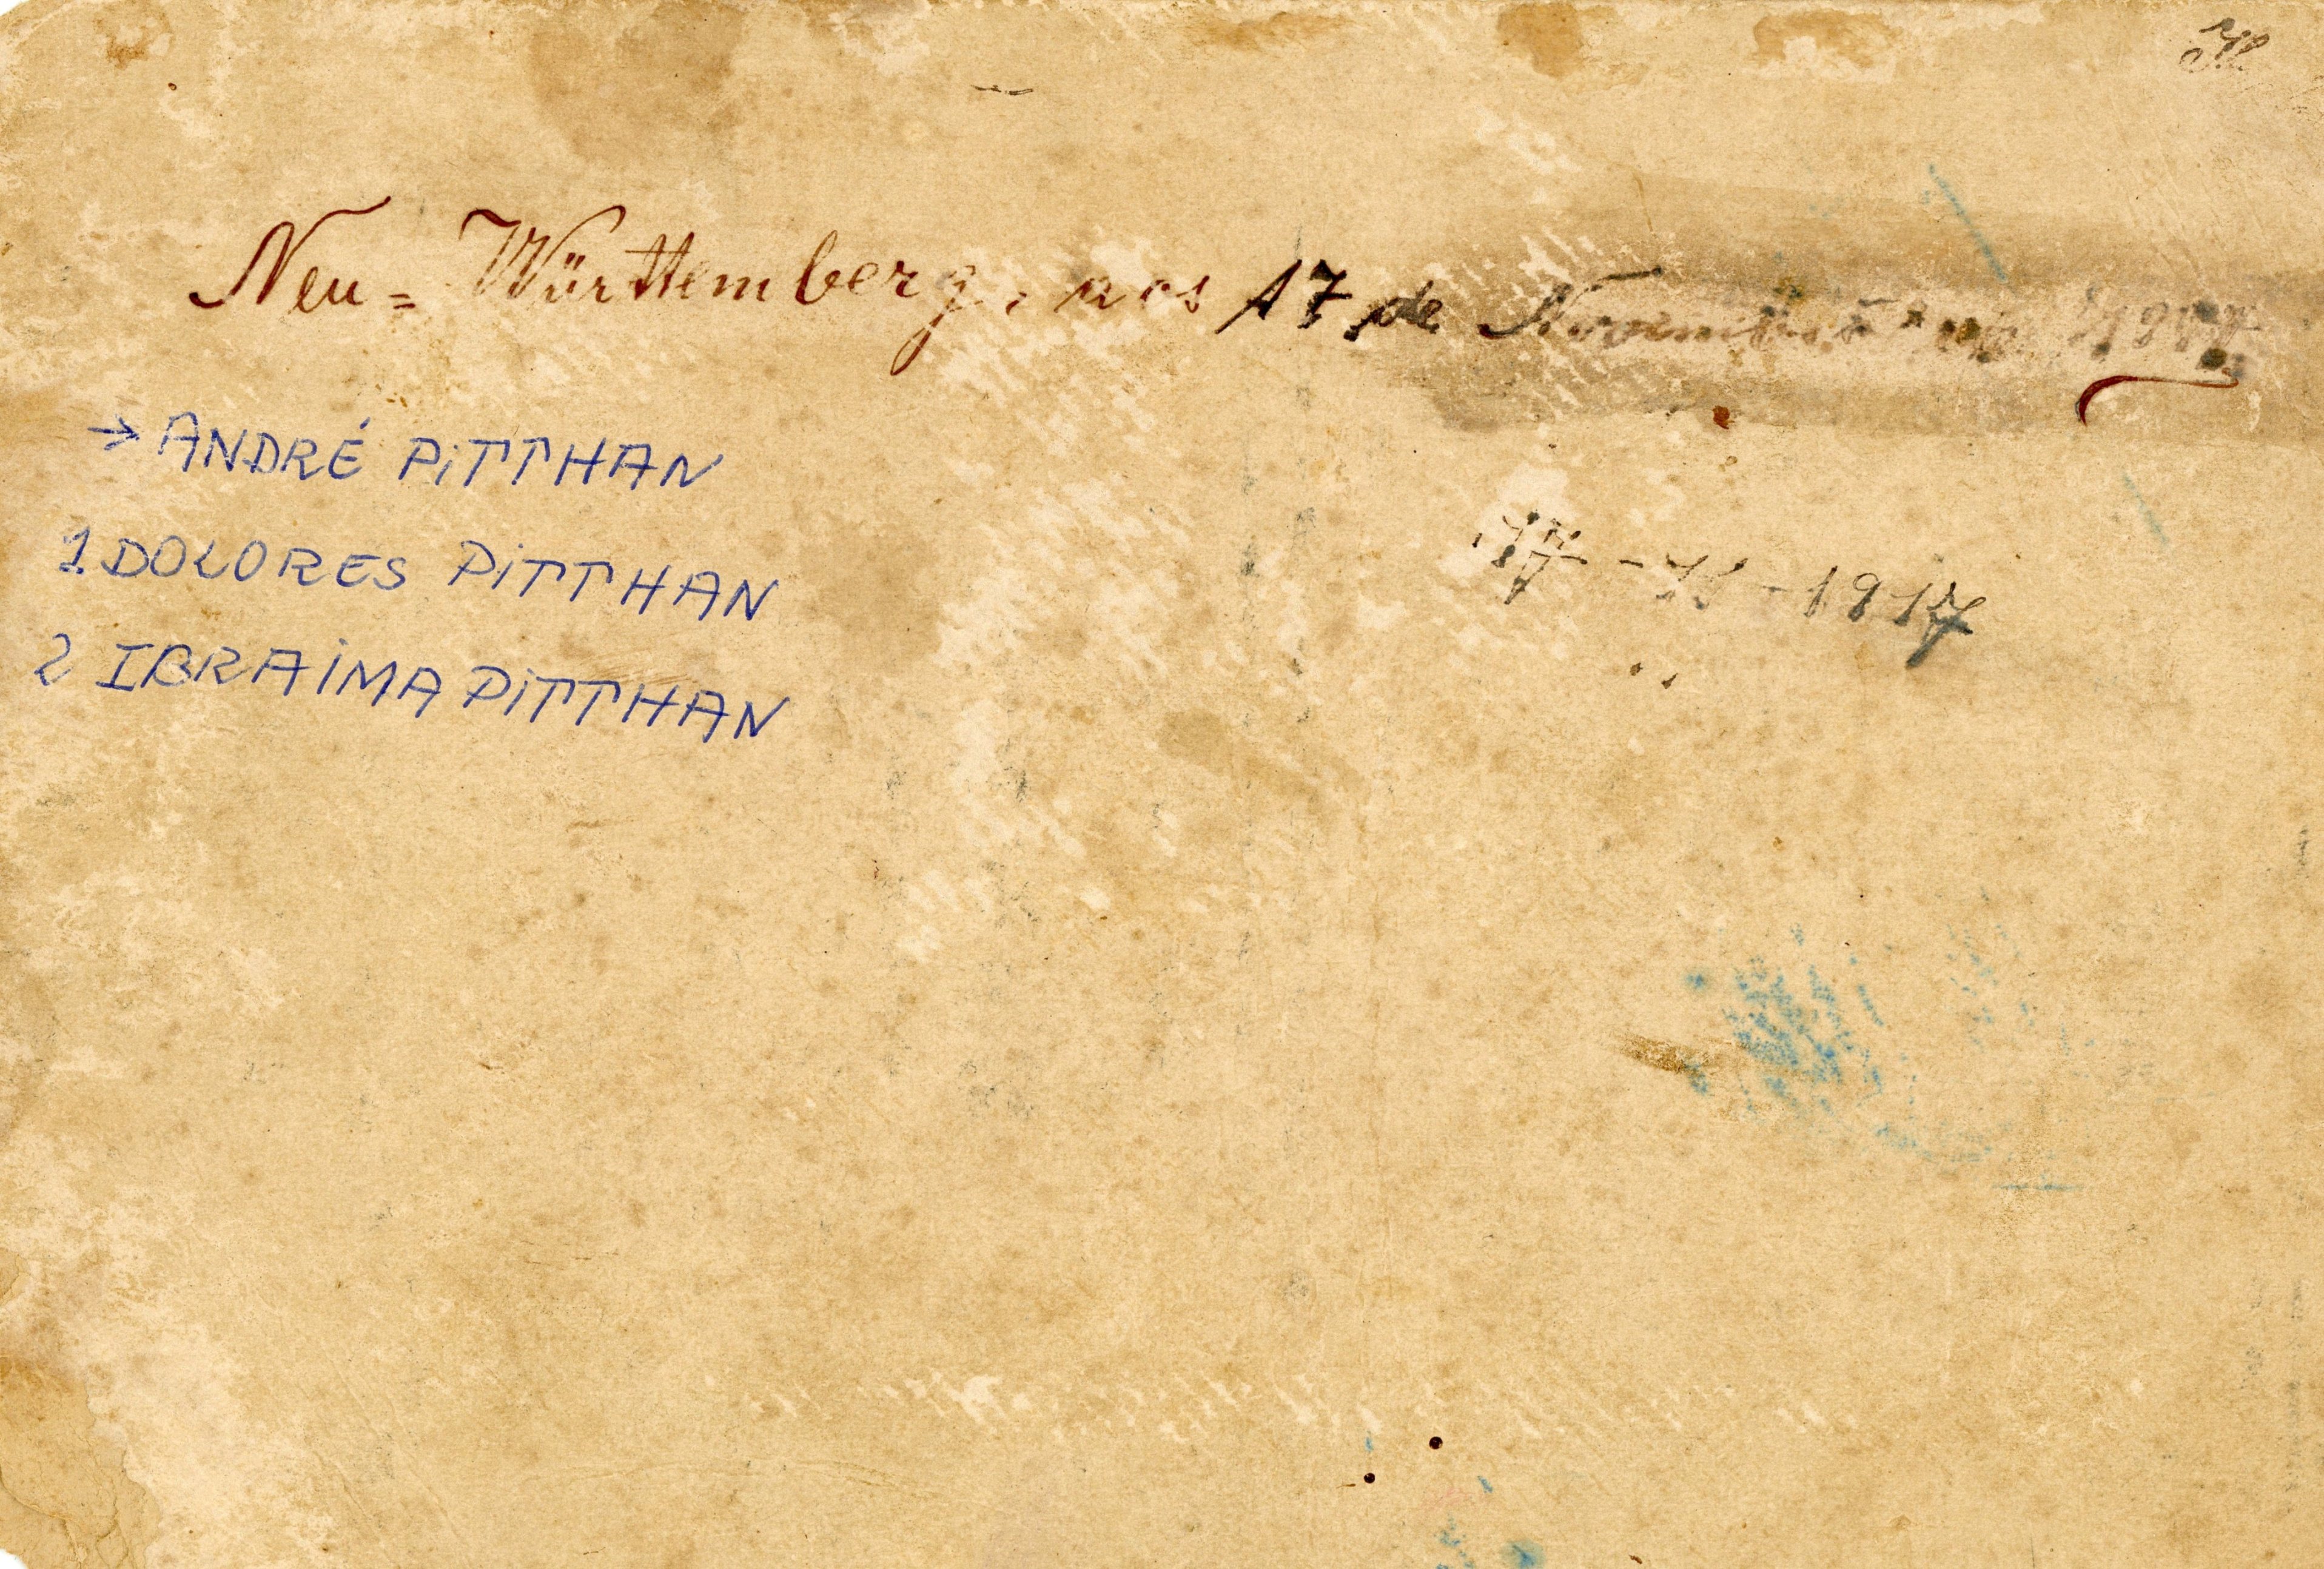 Neu=Württemberg, aos 17 de Novembro de
→ ANDRÉ PITTHAN
1. DOLORES PITTHAN
17-11-1917
2 IBRAIMA PITTHAN